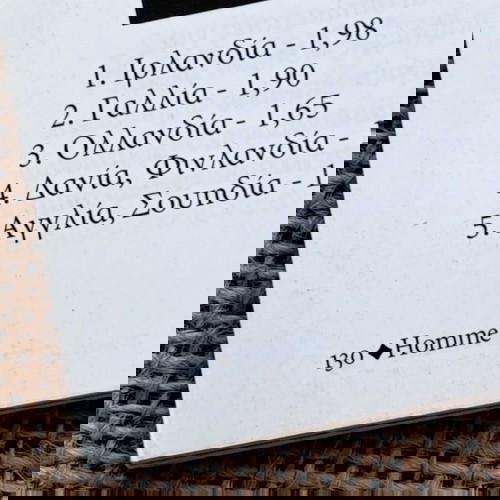 1. Ιρλανδία - 1,98
2. Γαλλία - 1,90
3. Ολλανδία - 1,65
4. Δανία, Φινλανδία -
5. Αγγλία, Σουηδία - 1
130 ◆ Homme